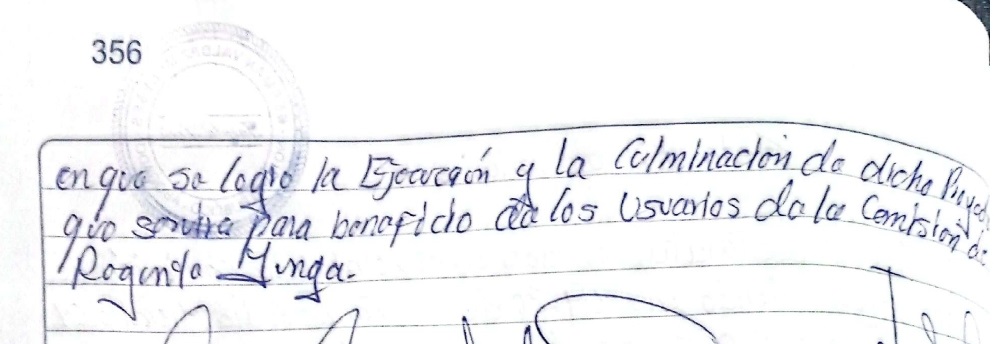 356
en que se logro la Ejecución y la Culminación de dicho Proyec
que servira para beneficio de los Usuarios de la Comisión de
Yunga.